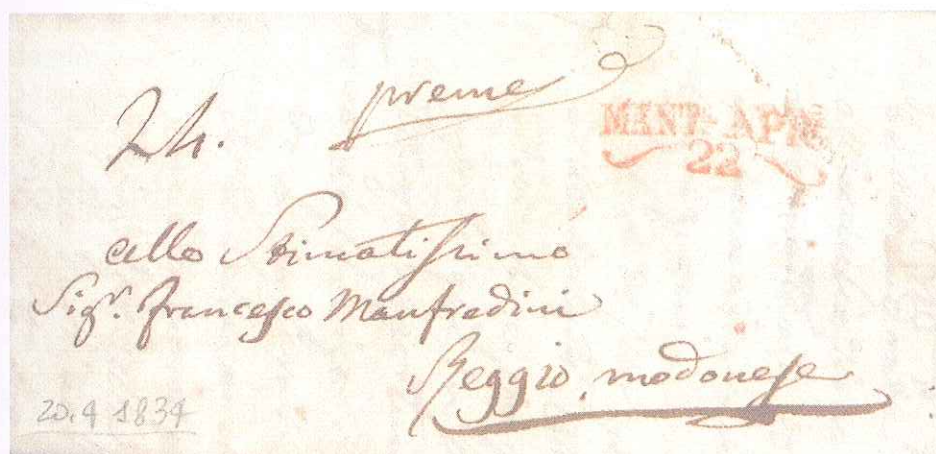 24. preme
MANT. APR.
22
allo Stimatissimo
Sigr. Francesco Manfredini
Reggio, modonese
20.4 1834